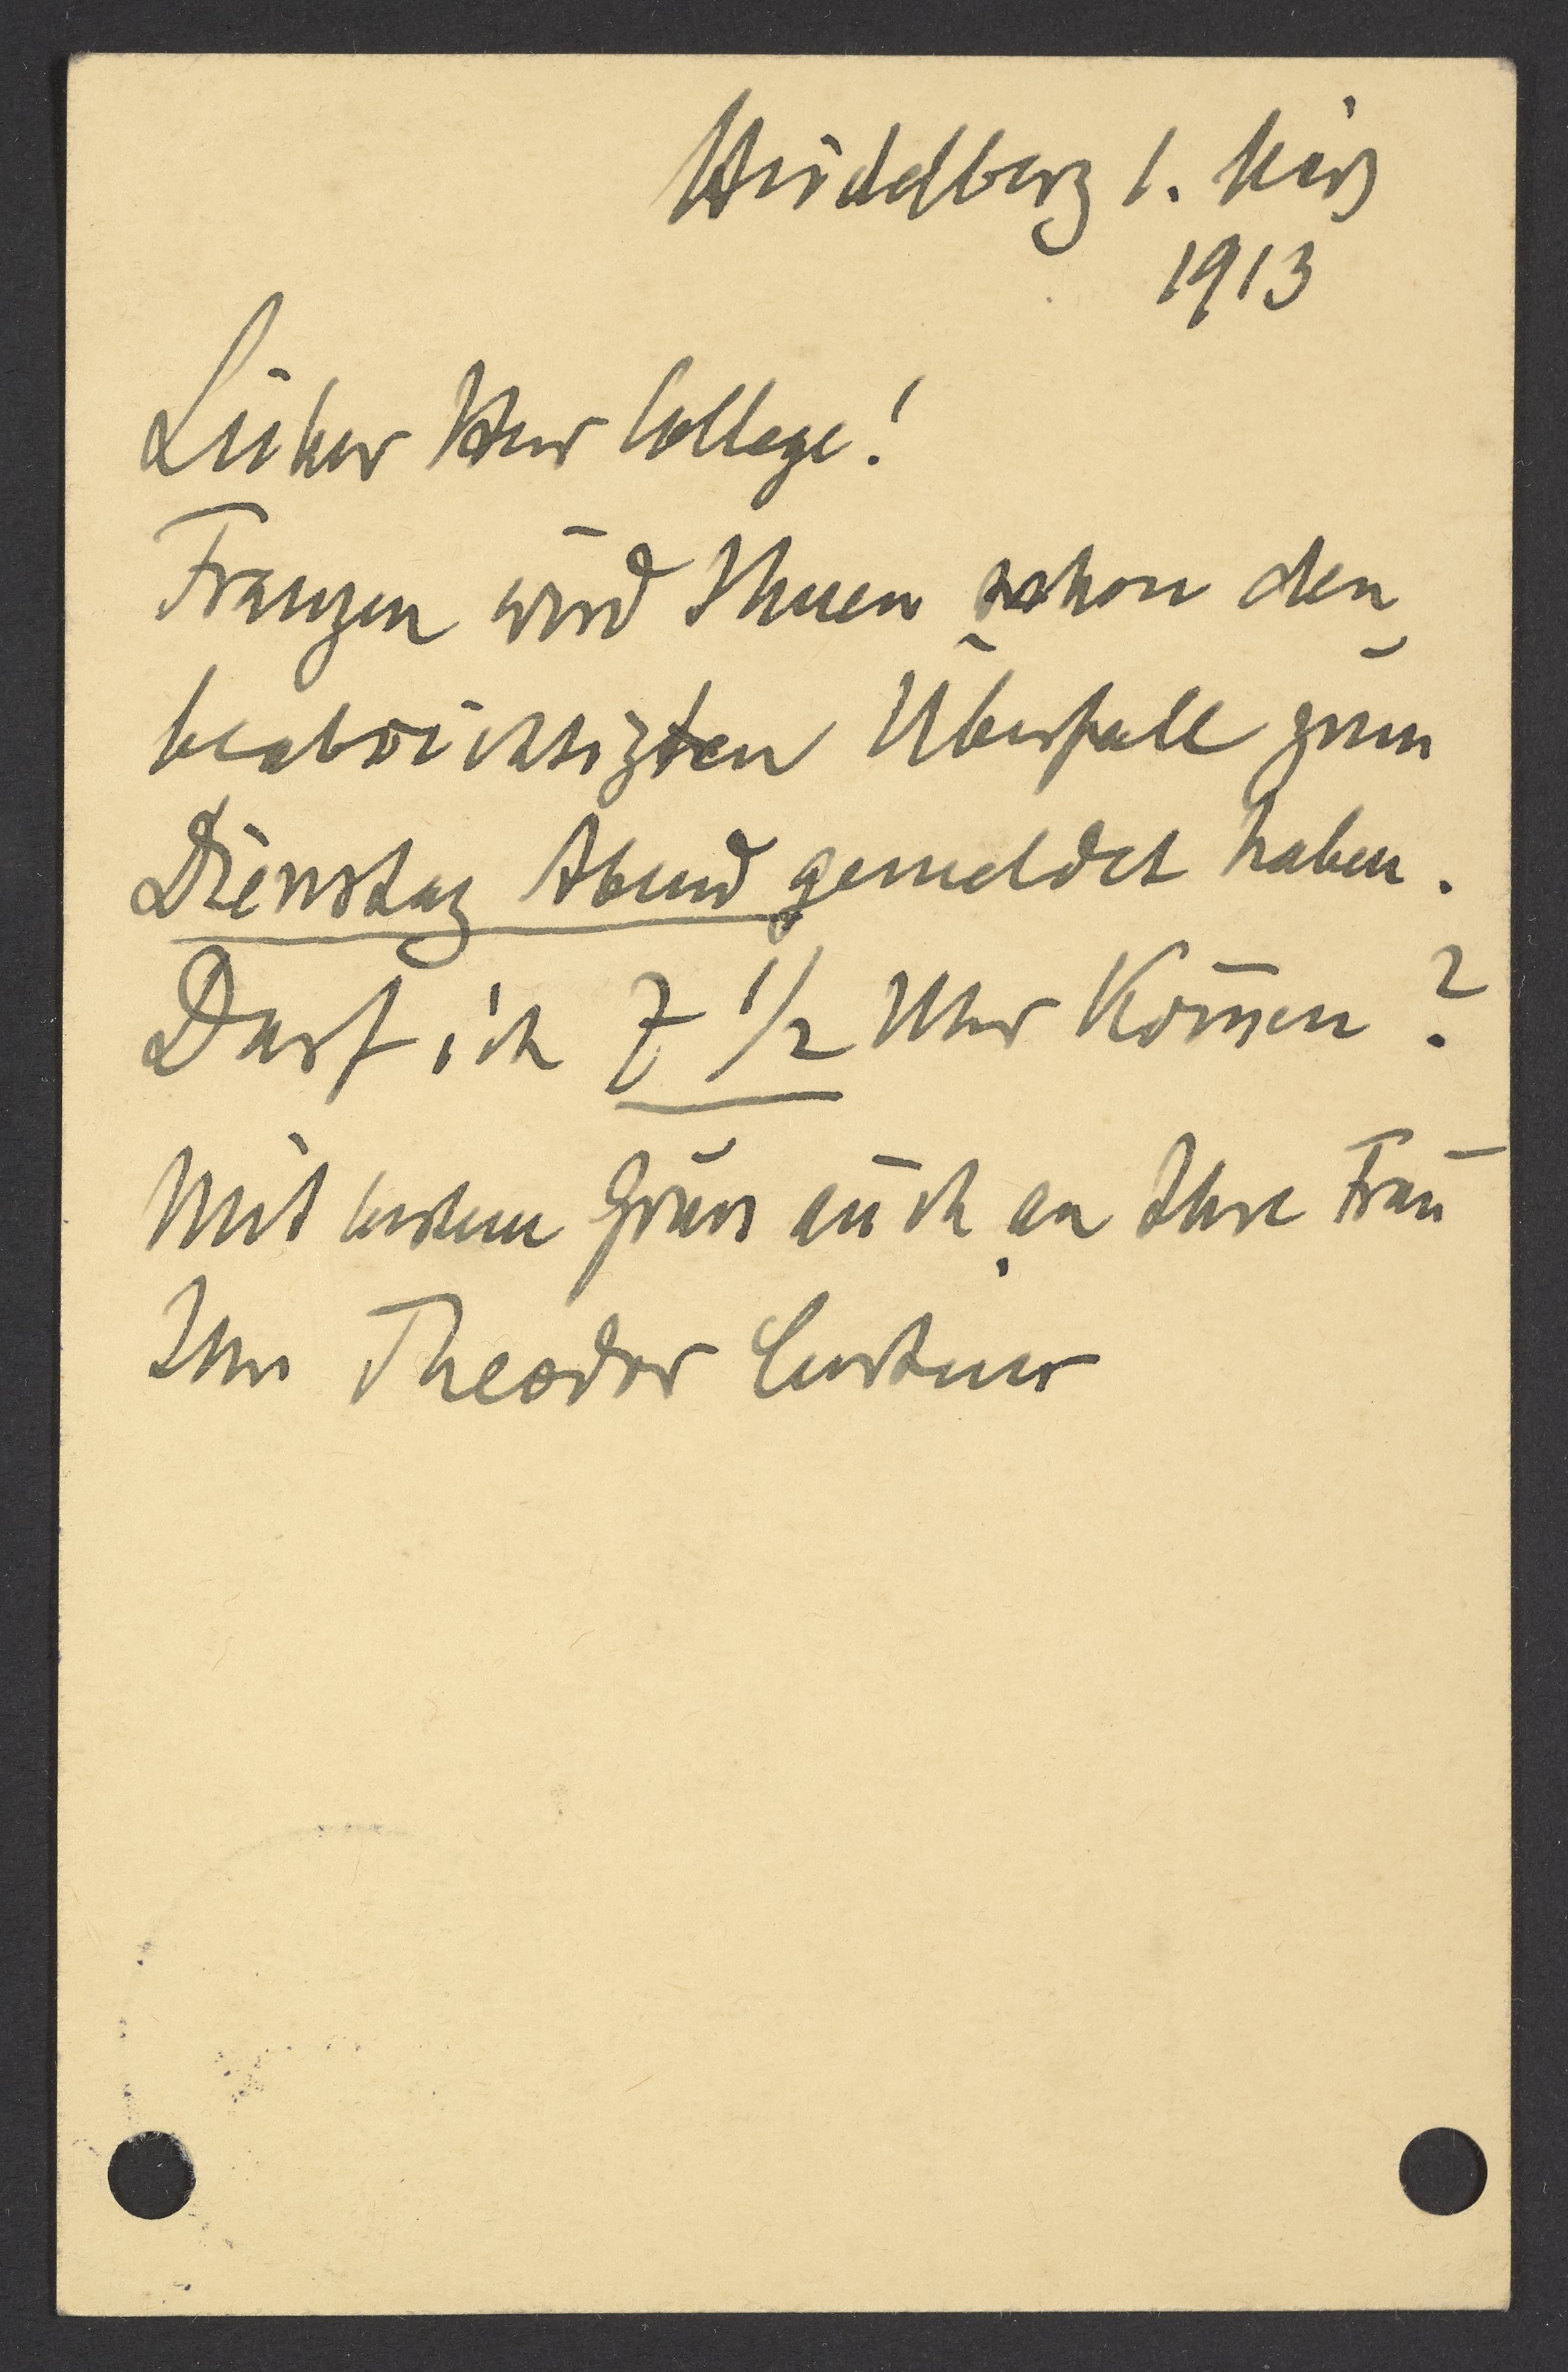 Heidelberg 1. März
1913
Lieber Herr College!
Franzen wird Ihnen schon den
beabsichtigten Überfall zum
Dienstag Abend gemeldet haben.
Darf ich 7 1/2 Uhr kom̄en?
Mit bestem Gruss auch an Ihre Frau
Ihr Theodor Curtius